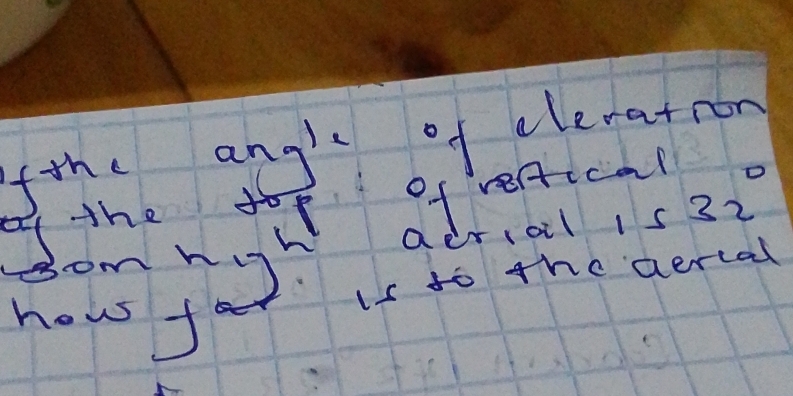 If the angle of elevation
of the top of vertical
30m high aerial is 32°
how far is to the aerial